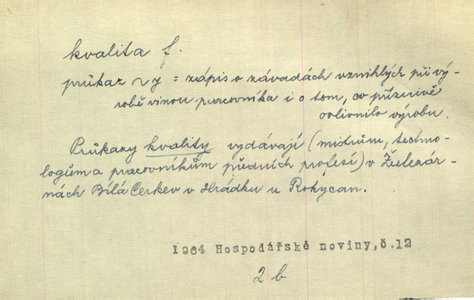 kvalita f.
průkaz ~y = zápis o závadách vzniklých při vý-
robě vinou pracovníka i o tom, co příznivě
ovlivnilo výrobu.
Průkazy kvality vydávají (mistrům, techno-
logům a pracovníkům předních profesí) v Železár-
nách Bílá Cerkev v Hrádku u Rokycan.
1964 Hospodářské noviny,č.12
2 b